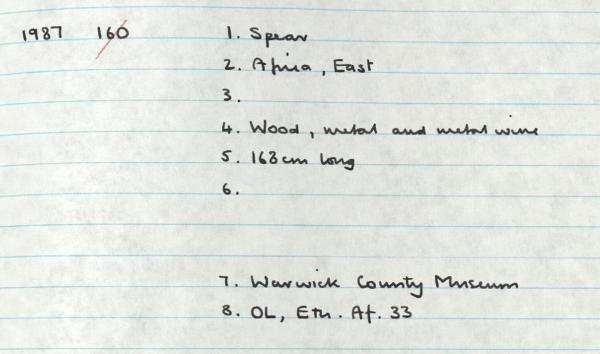 1987 160 1. Spear
2. Africa, East
3.
4. Wood, metal and metal wire
5. 168cm long
6.
7. Warwick County Museum
8. OL, Eth. Af. 33